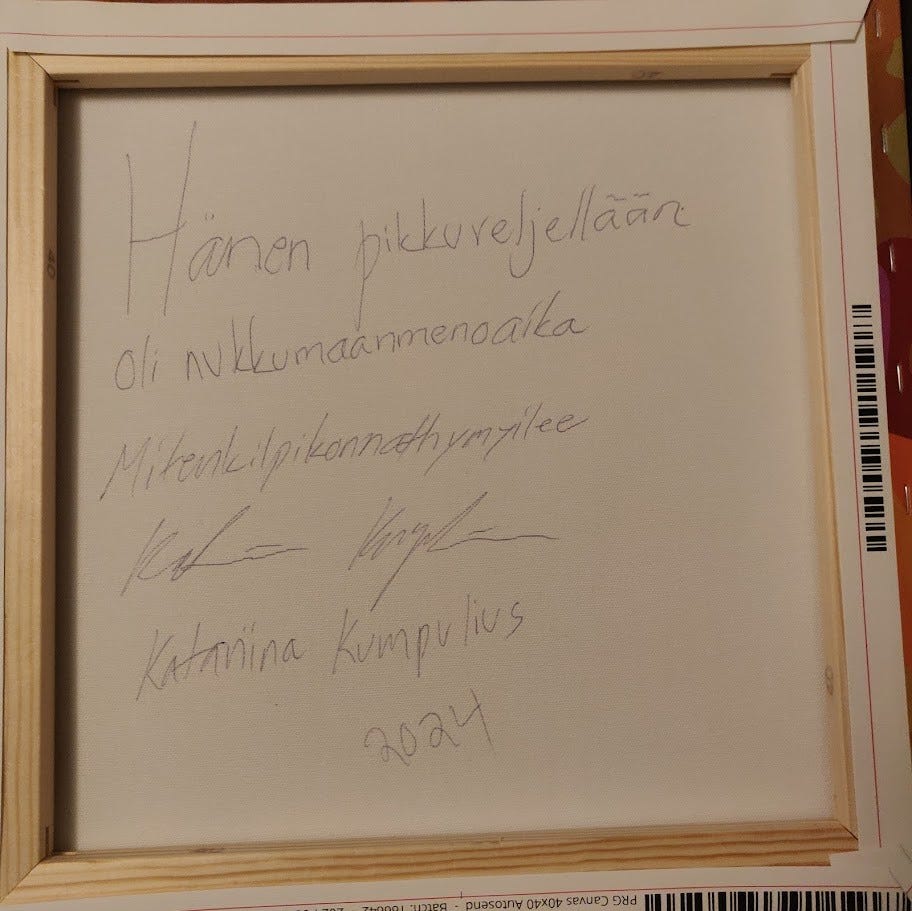 Hänen pikkuveljellään
oli nukkumaanmenoaika
Mitenkilpikonnathymyilee
Katariina Kumpulius
2024
PRG Canvas 40x40 Autosend - Batch: 166042 -